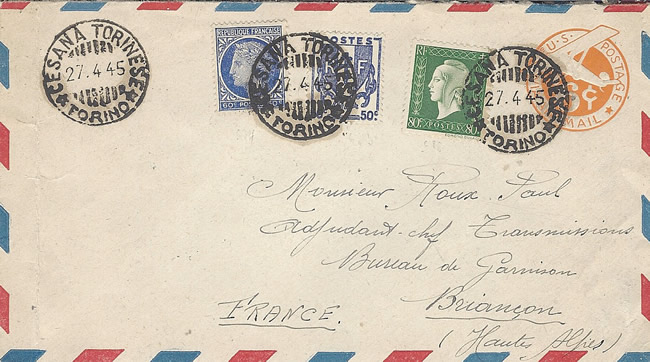 CESANA TORINESE
27.4.45
TORINO
REPUBLIQUE FRANÇAISE
60c POSTES
CESANA TORINESE
27.4.45
TORINO
POSTES
F
50c
RF
80c POSTES 80c
CESANA TORINESE
27.4.45
TORINO
U.S. POSTAGE
6¢
AIR MAIL
Monsieur Roux Paul
Adjudant-chef Transmissions
Bureau de Garnison
FRANCE.
Briançon
(Hautes Alpes)